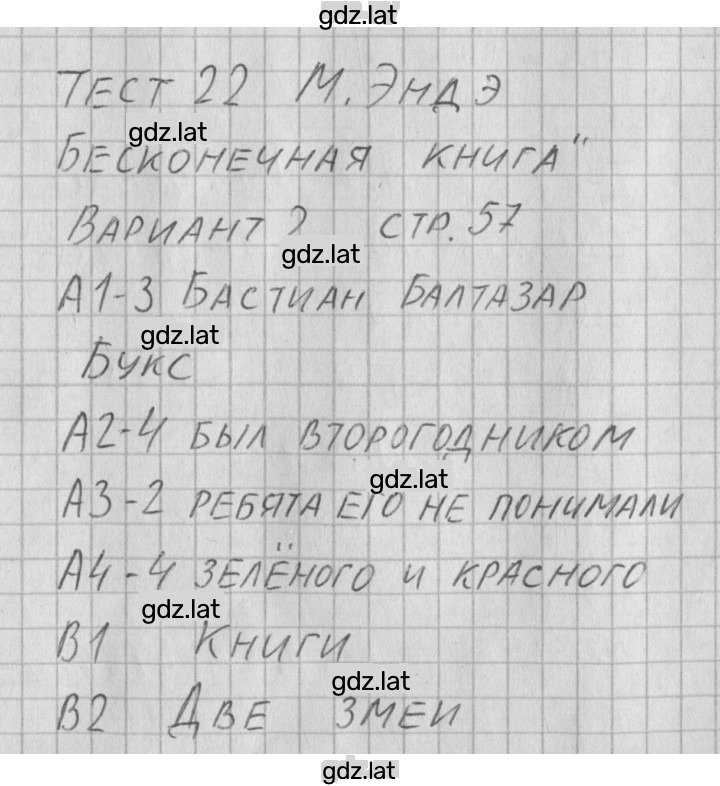 gdz.lat
Тест 22 М. Эндэ
gdz.lat
Бесконечная книга"
Вариант 2 стр. 57
gdz.lat
А1-3 Бастиан Балтазар
gdz.lat
Букс
А2-4 был второгодником
gdz.lat
А3-2 ребята его не понимали
А4-4 зелёного и красного
gdz.lat
В1 Книги
gdz.lat
В2 Две змеи
gdz.lat